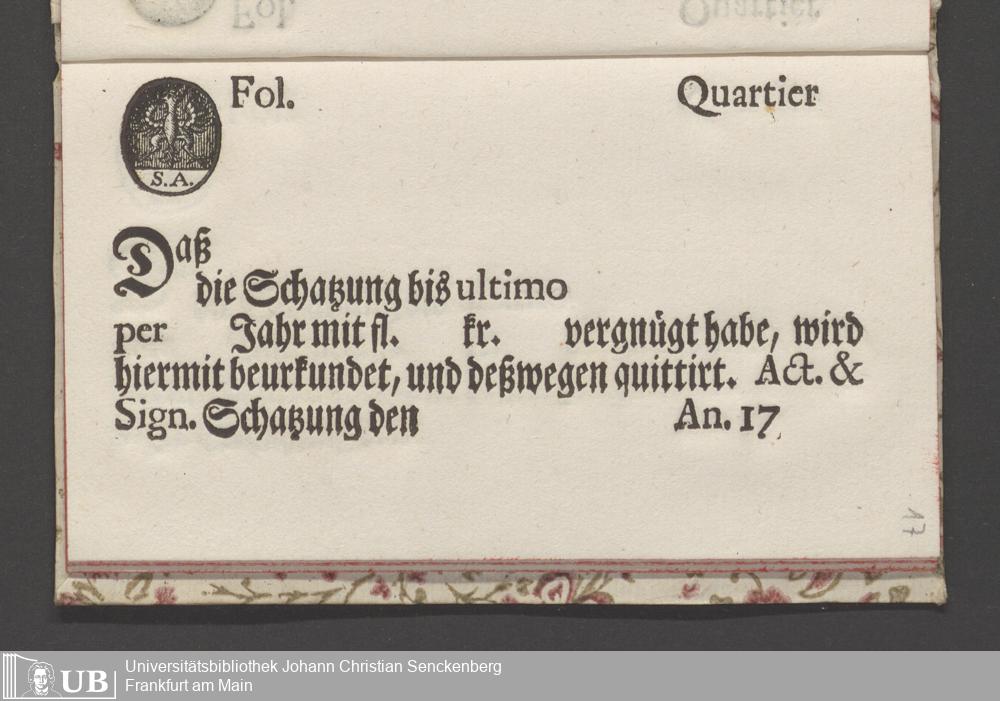 Fol. Quartier
S.A.
Daß
die Schatzung bis ultimo
per Jahr mit fl. kr. vergnügt habe, wird
hiermit beurkundet, und deßwegen quittirt. Act. &
Sign. Schatzung den An. 17
17
UB
Universitätsbibliothek Johann Christian Senckenberg
Frankfurt am Main